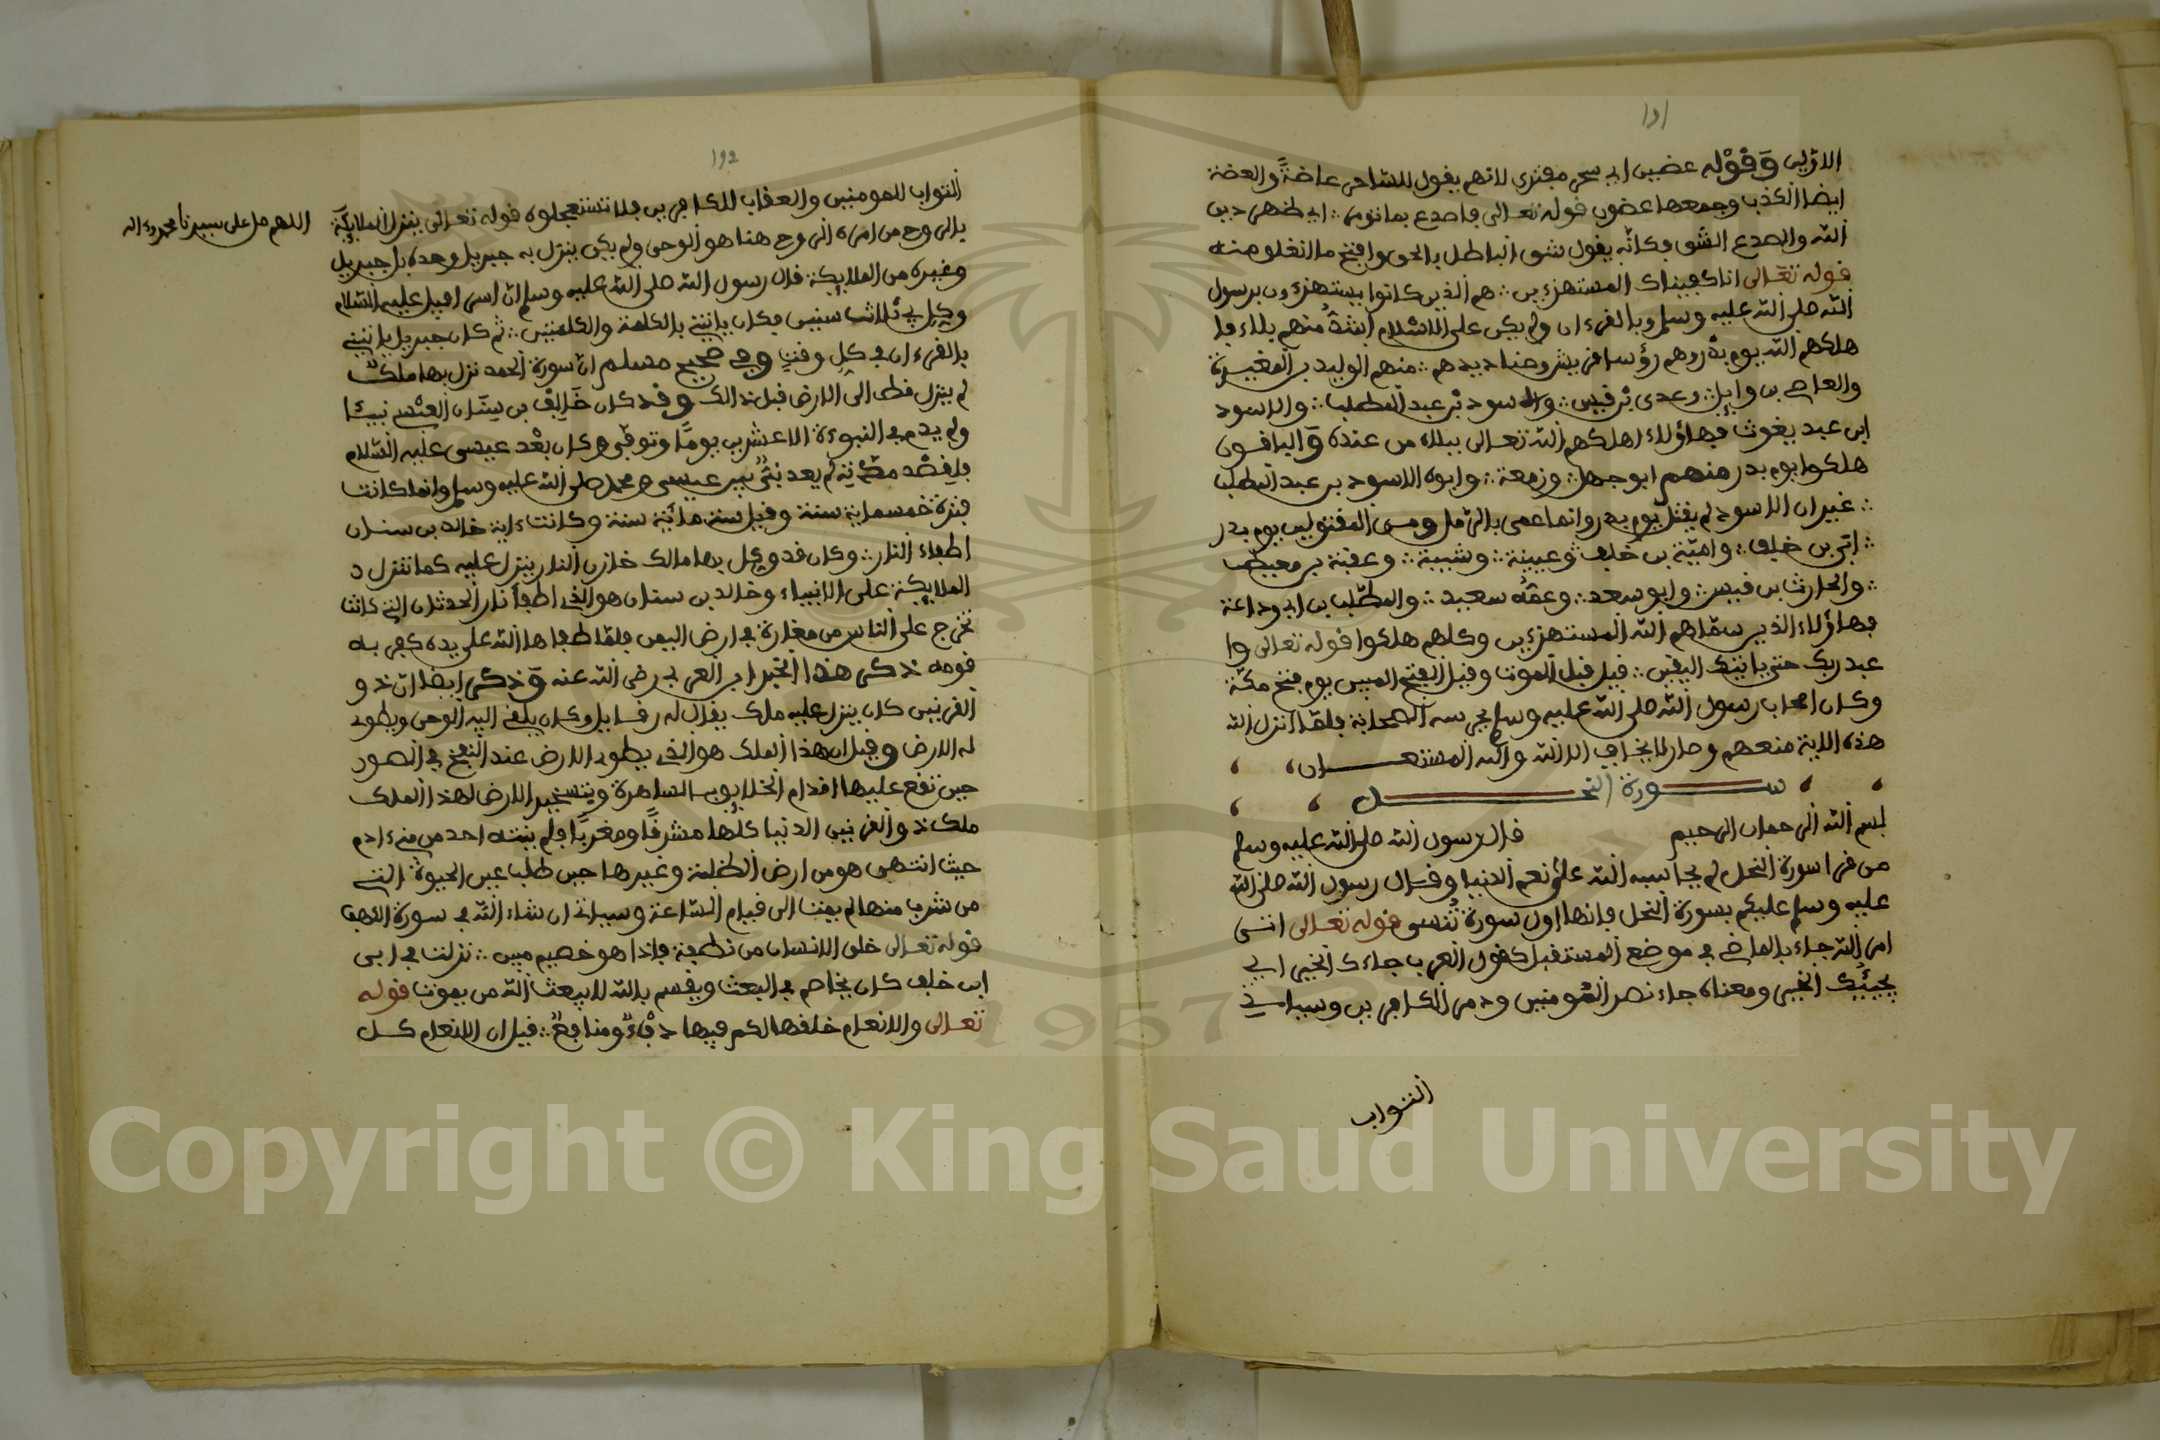 ١٥١
الازلى وقوله عضين اي سحر مفترى لانهم يقول للساحر عاضة والعضة
ايضا الكذب وجمعها عضون قوله تعالى فاصدع بما تومر ؞ اي اظهر دين
الله والصدع الشق فكانه يقول شق الباطل بالحق وافتح ما انغلق منه
قوله تعالى انا كفيناك المستهزءين ؞ هم الذين كانوا يستهزءون برسول
الله صلى الله عليه وسلم وبالقرءان ولم يكن على الاسلام اشد منهم بلاء فا
هلكهم الله يوم بدر وهم رؤسا قريش وصناديدهم ؞ منهم الوليد بن المغيرة
والعاصي بن وايل ؞ وعدى بن قيس ؞ والاسود بن عبد المطلب ؞ والاسود
ابن عبد يغوث فهاؤلاء اهلكهم الله تعالى ببلاء من عنده والباقون
هلكوا يوم بدر منهم ابو جهل ؞ وزمعة ؞ وابوه الاسود بن عبد المطلب
؞ غير ان الاسود لم يقتل يوم بدر وانما عمى بالرمل ومن المقتولين يوم بدر
؞ ابي بن خلف ؞ وامية بن خلف ؞ وعيينة ؞ وشيبة ؞ وعقبة بن معيط
؞ والحارث بن قيس ؞ وابو سعد ؞ وعمه سعيد ؞ والمطلب بن ابي وداعة
فهاؤلاء الذين سماهم الله المستهزءين وكلهم هلكوا قوله تعالى وا
عبد ربك حتى ياتيك اليقين ؞ قيل قبل الموت وقيل الفتح المبين يوم فتح مكة
وكان اصحاب رسول الله صلى الله عليه وسلم يحرسه الصحابة فلما انزل الله
هذه الاية منعهم وصار لا يخاف الا الله والله المستعان
سورة النحل
بسم الله الرحمان الرحيم قال رسول الله صلى الله عليه وسلم
من قرا سورة النحل لم يحاسبه الله على نعم الدنيا وقال رسول الله صلى الله
عليه وسلم عليكم بسورة النحل فانها اول سورة تنسى قوله تعالى اتى
امر الله جاء بالماضي في موضع المستقبل كقول العرب جاءك الخير اي
يجيئك الخير ومعناه جاء نصر المومنين ودمر الكافرين وسياتي
الثواب
١٥٢
الثواب للمومنين والعقاب للكافرين فلا تستعجلوه قوله تعالى ينزل الملايكة
اللهم صل على سيدنا محمد وءاله
بالروح من امره الروح هنا هو الوحى ولم يكن ينزل به جبريل وحده بل جبريل
وغيره من الملايكة قال رسول الله صلى الله عليه وسلم ان اسرافيل عليه السلام
وكل بي ثلاث سنين فكان ياتيني بالكلمة والكلمتين ؞ ثم كان جبريل ياتيني
بالقرءان في كل وقت وفي صحيح مسلم ان سورة الحمد نزل بها ملك
لم ينزل قط الى الارض قبل ذالك وقد كان خالد بن سنان العبسي نبيئا
ولم يدم في النبوءة الا عشرين يوما وتوفي وكان بعد عيسى عليه السلام
فلقصد مدته لم يعد نبي بين عيسى ومحمد صلى الله عليه وسلم وانما كانت
فترة خمسماية سنة وقيل ستماية سنة وكانت ءاية خالد بن سنان
اطفاء النار ؞ وكان قد وكل بها مالك خازن النار ينزل عليه كما تنزل د
الملايكة على الانبياء وخالد بن سنان هو الذي اطفأ نار الحدثان التي كانت
تخرج على الناس من مغارة في ارض اليمن فلما اطفاها الله على يده كفر به
قومه ذكر هذا الخبر ابن العربي رضى الله عنه وذكر ايضا ان ذو
القرنين كان ينزل عليه ملك يقال له رفايل وكان يلقي اليه الوحى ويطوي
له الارض وقيل ان هذا الملك هو الذي يطوي الارض عند النفخ في الصور
حين تقع عليها اقدام الخلايق بالساهرة وبتسخير الارض لهذا الملك
ملك ذو القرنين الدنيا كلها مشرقا ومغربا فلم ينته احد من بني ءادم
حيث انتهى هو من ارض الظلمة وغيرها حين طلب عين الحيوة التي
من شرب منها لم يمت الى قيام الساعة وسياتي ان شاء الله في سورة الكهف
قوله تعالى خلق الانسان من نطفة فاذا هو خصيم مبين ؞ نزلت في ابي
ابن خلف كان يخاصم في البعث ويقسم بالله لا يبعث الله من يموت قوله
تعالى والانعام خلقها لكم فيها دفء ومنافع ؞ قيل ان الانعام كل
Copyright © King Saud University
1957